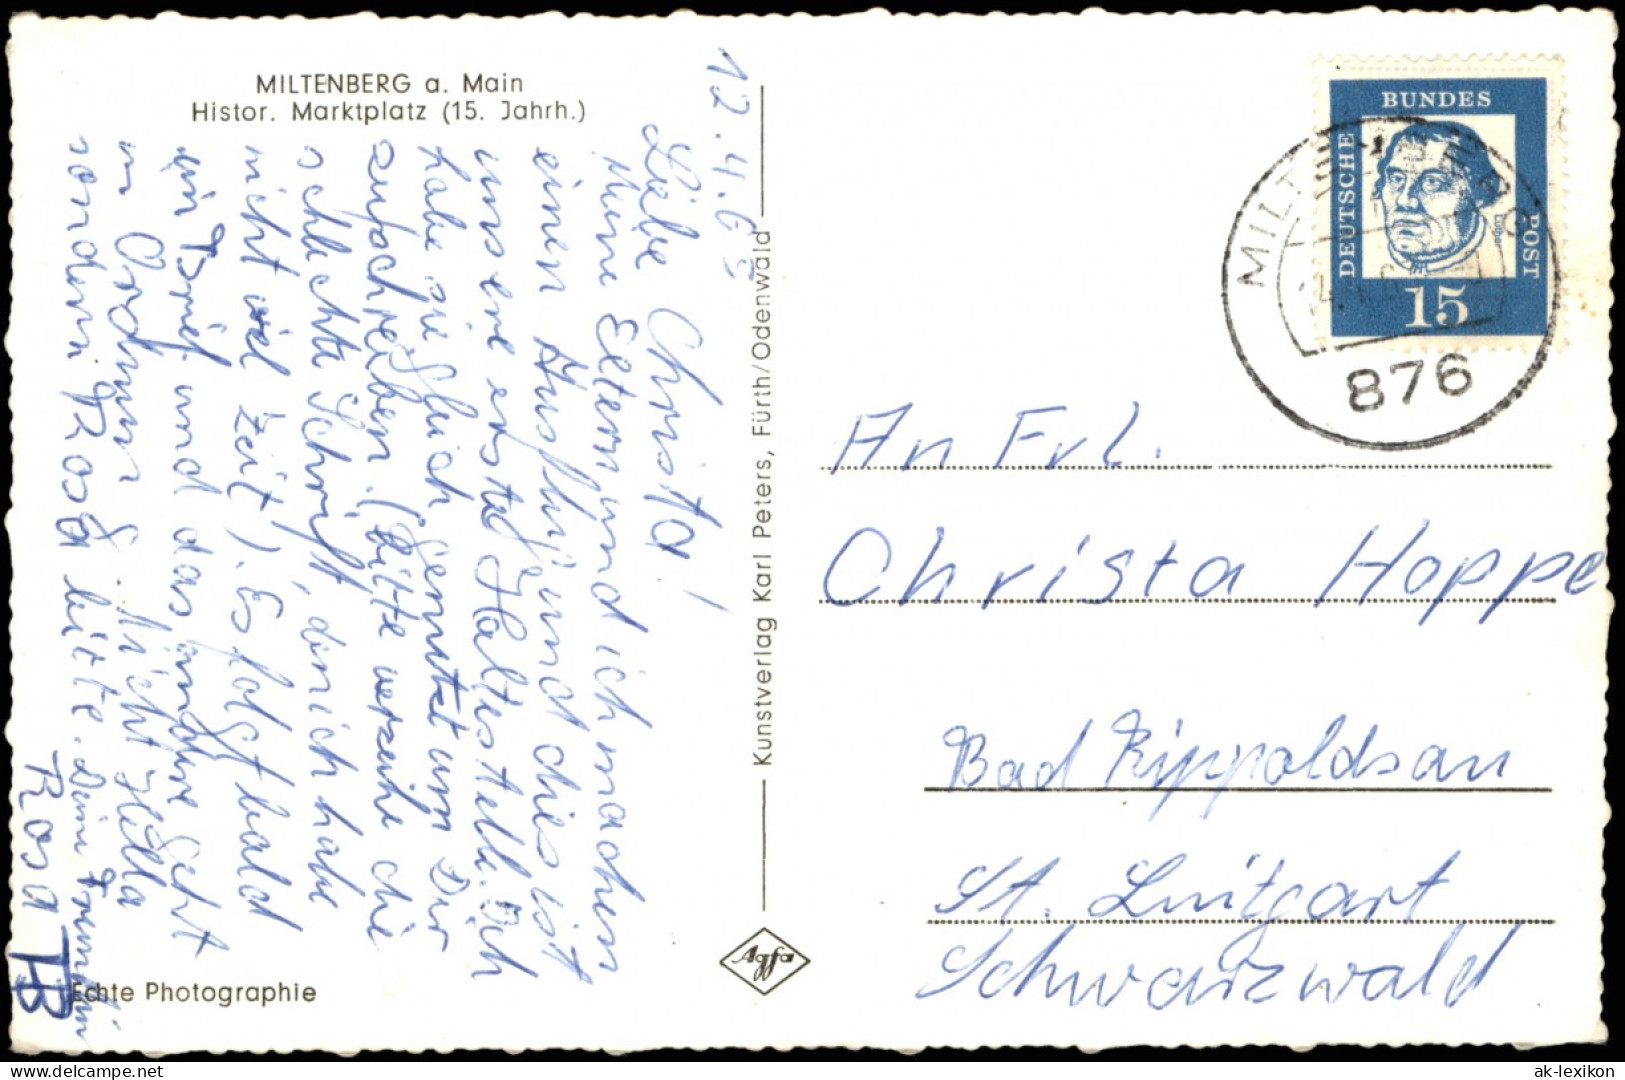 MILTENBERG a. Main
Histor. Marktplatz (15. Jahrh.)
12.4.63
Liebe Christa!
Meine Eltern und ich machen
einen Ausflug und dies ist
unsere erste Haltestelle. Ich
habe sie gleich genutzt um Dir
zuschreiben. (Bitte verzeihe die
schlechte Schrift, denn ich habe
nicht viel Zeit). Es folgt bald
ein Brief und das andere geht
in Ordnung. Nicht Hella
sondern Rosa bitte. Deine Freundin
Rosa B
Echte Photographie
Kunstverlag Karl Peters, Fürth/Odenwald
Agfa
DEUTSCHE BUNDES POST
Luther
15
MILTENBERG
876
An Frl.
Christa Hoppe
Bad Rippoldsau
St. Luitgart
Schwarzwald
www.delcampe.net
ak-lexikon